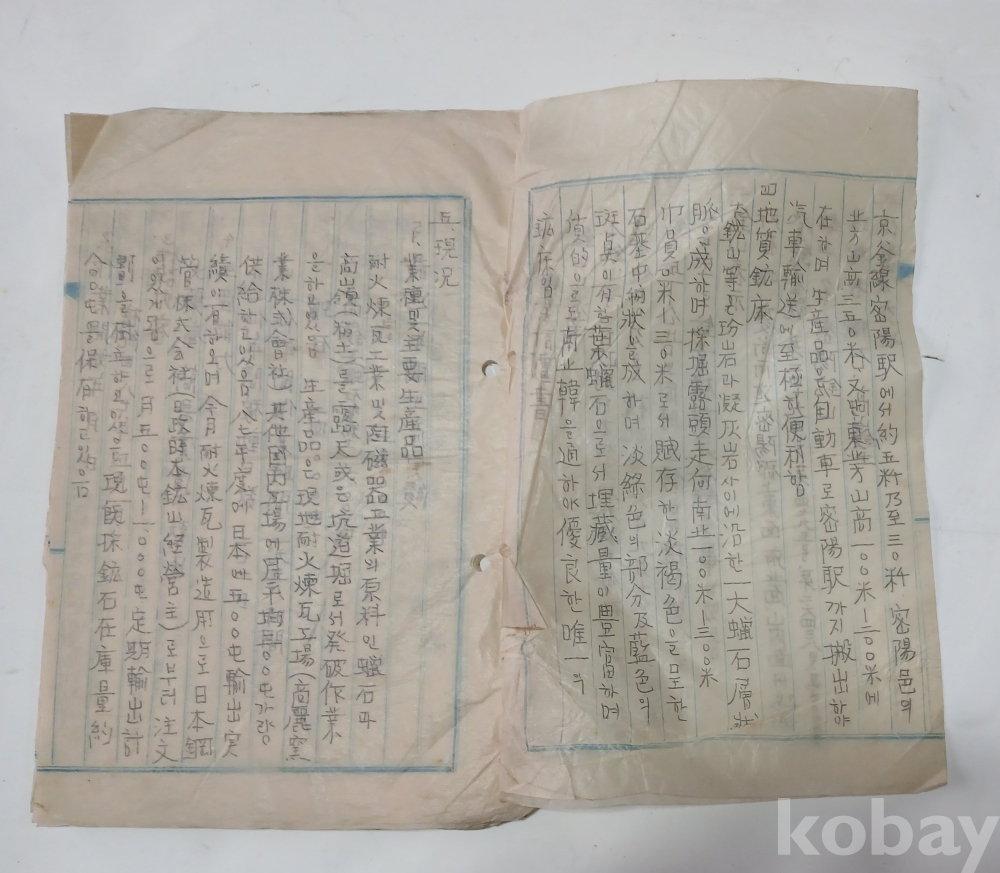 京釜線密陽駅에서約五粁乃至三○粁 密陽邑의
芳山高三五○米又는東芳山高一○○米—二○○米에
在하며 生産品은自動車로密陽駅까지搬出하야
汽車輸送에至極히便利함
四 地質鉱床
鉱山等은玢岩과凝灰岩사이에沿한一大蠟石層状
脈을成하며 採掘露頭走向南北一○○米—三○○米
巾員 米—三○米로서賦存한淡褐色으로모한
石基中 状을成하며 淡綠色의部分及藍色의
斑点이有한葉蠟石으로서埋蔵量이豊富하며
質的으로도南北韓을通하야優良한唯一의
鉱床
五. 現況
業種및主要生産品
耐火煉瓦工業및陶磁器工業의原料인蠟石과
高嶺(粘土)를露天或은坑道堀로서発破作業
을하고있음 生産品은現地耐火煉瓦工場(高麗窯
業株式會社)其他国内工場에 ○○屯가량
供給하고있음 年度에日本에五○○屯輸出实
績이有하오며 今月耐火煉瓦製造用으로日本鋼
管株式会社( 本鉱山経営主)로부터注文
이있 으로月五○○屯—一○○○屯定期輸出計
劃을 現 鉱石在庫量約
屯를保 하고있음
kobay